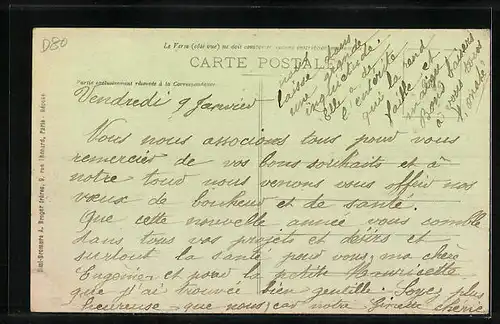 D80
Le Verso (côté vue) ne doit
CARTE POSTALE
Partie exclusivement réservée à la Correspondance
Simi-Bromure A. Breger frères, 9, rue Thénard, Paris
Vendredi 9 Janvier
Vous nous associons tous pour vous
remercier de vos bons souhaits et à
notre tour nous venons vous offrir nos
vœux de bonheur et de santé.
Que cette nouvelle année vous comble
dans tous vos projets et désirs et
surtout la santé pour vous, ma chère
et pour la petite Mauricette
que j'ai trouvée bien gentille. Soyez plus
heureuse que nous, car notre Ginette chérie
nous
laisse dans
une grande
inquiétude.
Elle a de
l'entérite
qui la rend
faible et
Bons baisers
à vous tous